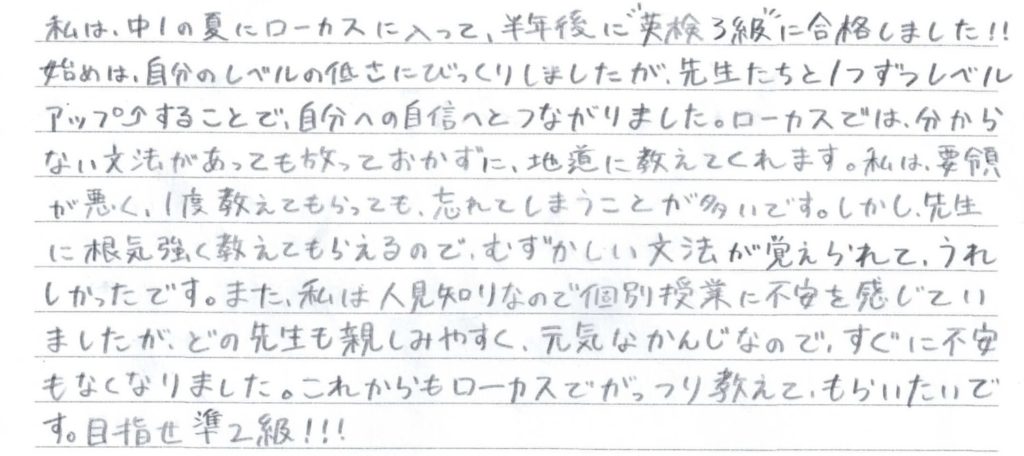 私は、中1の夏にローカスに入って、半年後に"英検3級"に合格しました!!
始めは、自分のレベルの低さにびっくりしましたが、先生たちと1つずつレベル
アップ↑することで、自分への自信へとつながりました。ローカスでは、分から
ない文法があっても放っておかずに、地道に教えてくれます。私は、要領
が悪く、1度教えてもらっても、忘れてしまうことが多いです。しかし、先生
に根気強く教えてもらえるので、むずかしい文法が覚えられて、うれ
しかったです。また、私は人見知りなので個別授業に不安を感じてい
ましたが、どの先生も親しみやすく、元気なかんじなので、すぐに不安
もなくなりました。これからもローカスでがっつり教えて、もらいたいで
す。目指せ準2級!!!